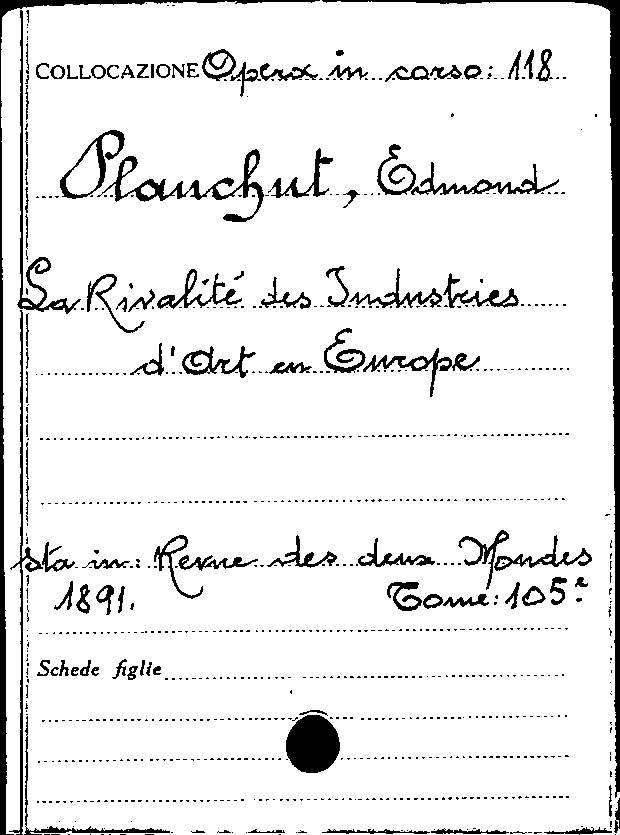 COLLOCAZIONE Opera in corso: 118
Planchut, Edmond
La Rivalité des Industries
d'Art en Europe
sta in: Revue des deux Mondes
1891. Tome: 105e
Schede figlie